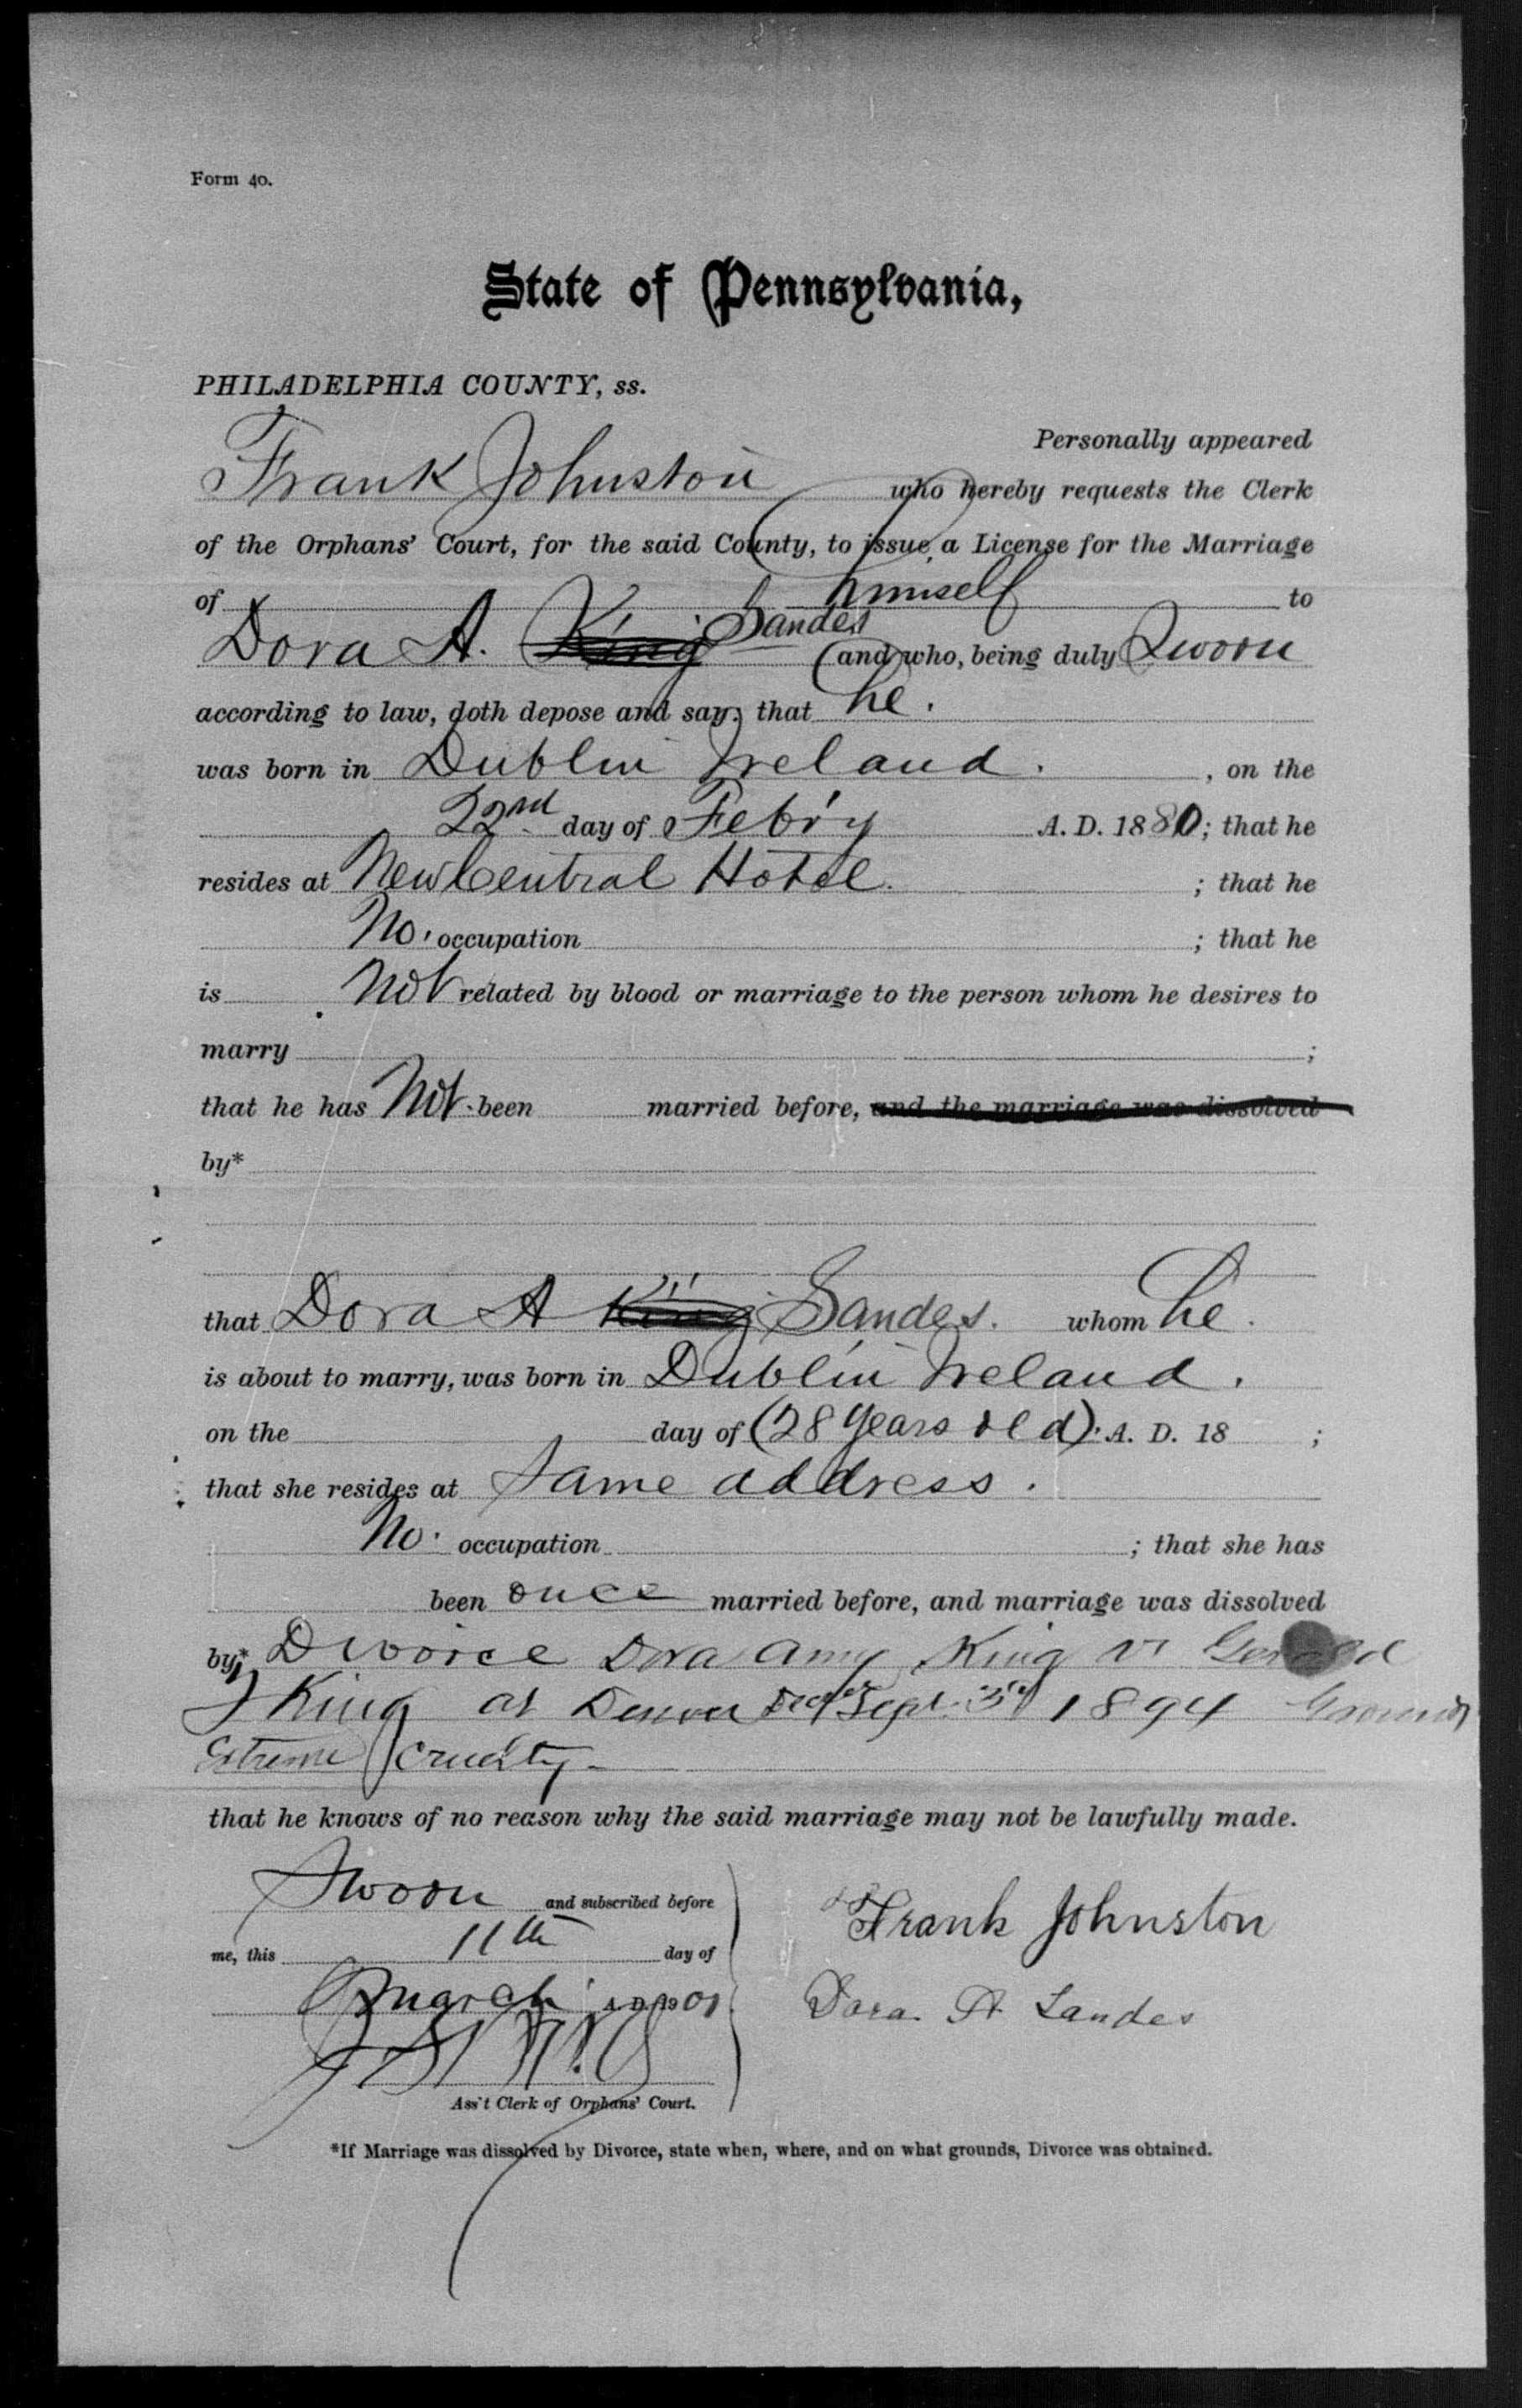 Form 40.
State of Pennsylvania,
PHILADELPHIA COUNTY, ss.
Personally appeared
Frank Johnston who hereby requests the Clerk
of the Orphans' Court, for the said County, to issue a License for the Marriage
of himself to
Dora A. King Sandes (and who, being duly Sworn
according to law, doth depose and say: that he.
was born in Dublin Ireland. , on the
22nd day of Feb'y A. D. 1880; that he
resides at New Central Hotel. ; that he
No. occupation ; that he
is Not related by blood or marriage to the person whom he desires to
marry ;
that he has Not been married before, and the marriage was dissolved
by*
that Dora A King Sandes. whom he.
is about to marry, was born in Dublin Ireland.
on the day of (28 Years old). A. D. 18 ;
that she resides at Same address.
No. occupation ; that she has
been once married before, and marriage was dissolved
by* Divorce Dora Amy King vs Gerald
King at Denver Sept. 3d 1894 Grounds
Extreme Cruelty-
that he knows of no reason why the said marriage may not be lawfully made.
Sworn and subscribed before
me, this 11th day of
March A. D. 1901
Frank Johnston
Dora A Sandes
Ass't Clerk of Orphans' Court.
*If Marriage was dissolved by Divorce, state when, where, and on what grounds, Divorce was obtained.